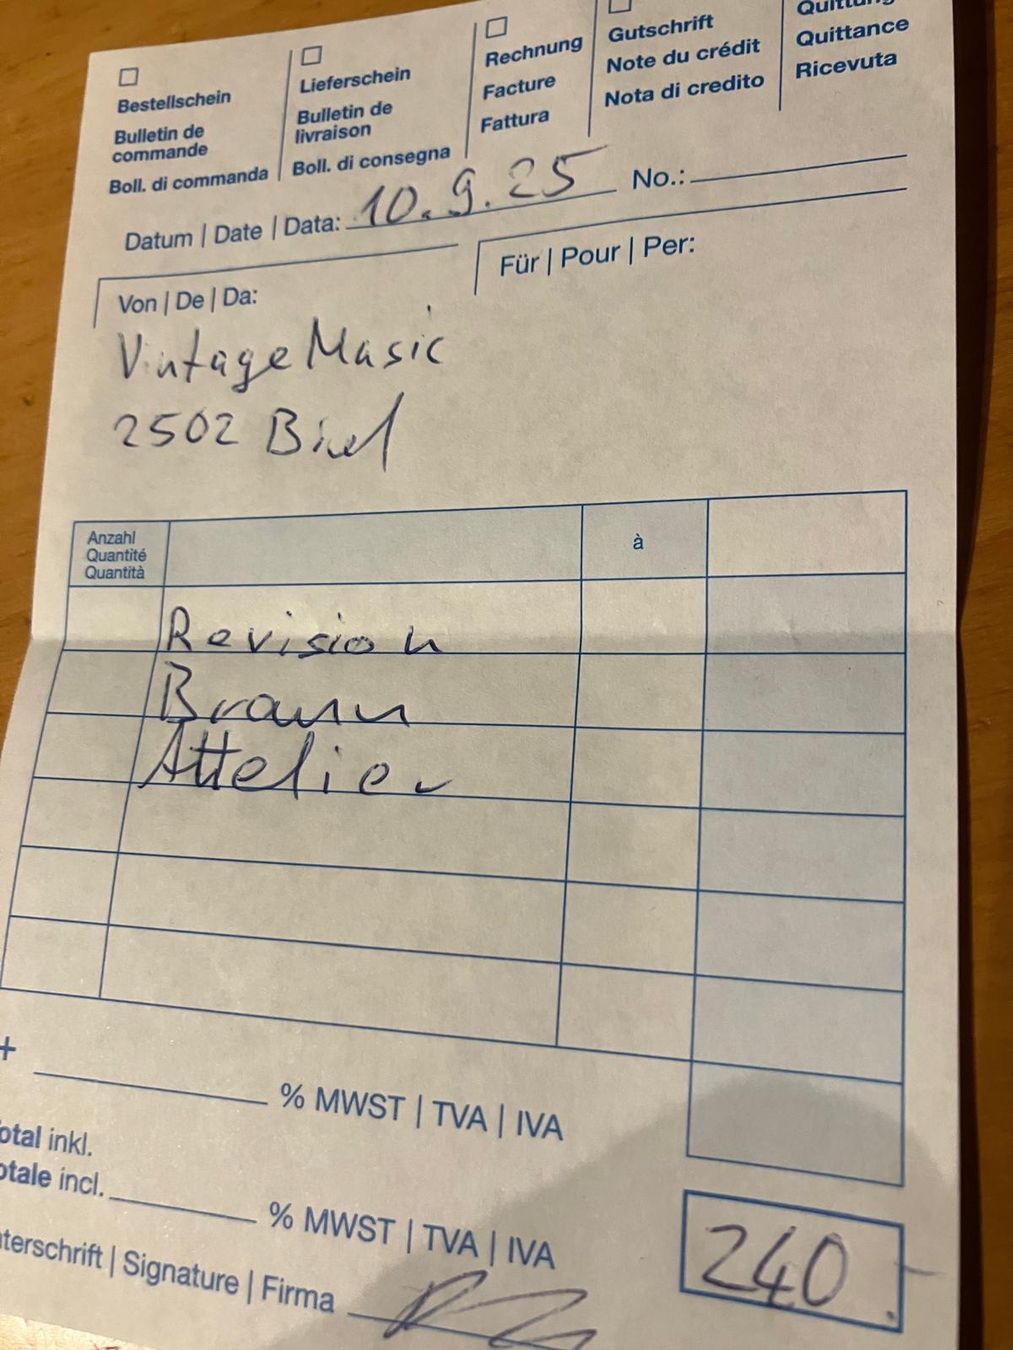 Bestellschein
Bulletin de
commande
Boll. di commanda
Lieferschein
Bulletin de
livraison
Boll. di consegna
Rechnung
Facture
Fattura
Gutschrift
Note du crédit
Nota di credito
Quittung
Quittance
Ricevuta
Datum | Date | Data: 10.9.25 No.:
Von | De | Da:
Für | Pour | Per:
Vintage Music
2502 Biel
Anzahl
Quantité
Quantità
à
Revision
Braun
Attelier
+ % MWST | TVA | IVA
otal inkl.
otale incl. % MWST | TVA | IVA
240.-
nterschrift | Signature | Firma